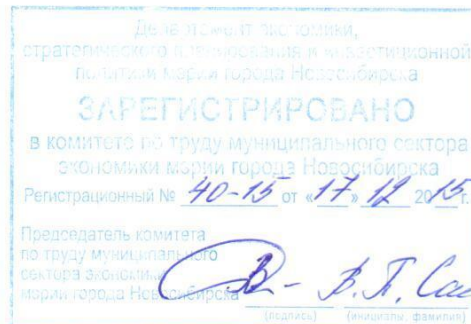 Департамент экономики,
стратегического планирования и инвестиционной
политики мэрии города Новосибирска
ЗАРЕГИСТРИРОВАНО
в комитете по труду муниципального сектора
экономики мэрии города Новосибирска
Регистрационный № 40-15 от «17» 12 2015г.
Председатель комитета
по труду муниципального
сектора экономики
мэрии города Новосибирска В.П.
(подпись) (инициалы, фамилия)